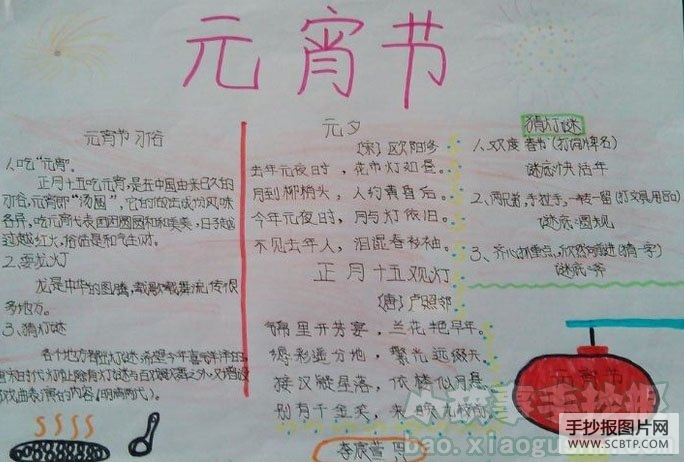 元宵节
元宵节习俗
1、吃“元宵”
正月十五吃元宵,是在中国由来已久的
习俗,元宵即“汤圆”,它的做法成份风味
各异,吃元宵代表团团圆圆和和美美,日子越
过越红火,俗话是和气生财。
2、耍龙灯
龙是中华的图腾,载歌载舞,流传很
多地方。
3、猜灯谜
元夕
[宋]欧阳修
去年元夜时,花市灯如昼。
月到柳梢头,人约黄昏后。
今年元夜时,月与灯依旧。
不见去年人,泪湿春衫袖。
正月十五观灯
[唐]卢照邻
锦里开芳宴,兰花艳早年。
缛彩遥分地,繁光远缀天。
接汉疑星落,依楼似月悬。
别有千金笑,来映九枝前。
猜灯谜
1、欢度春节(打词牌名)
谜底:快活年
2、两兄弟,手拉手,一转一留(打文具用品)
谜底:圆规
3、齐心抓重点,欣然向前进(猜一字)
谜底:斧
元宵节
手抄报图片网
WWW.SCBTP.COM
bao.xiaogu